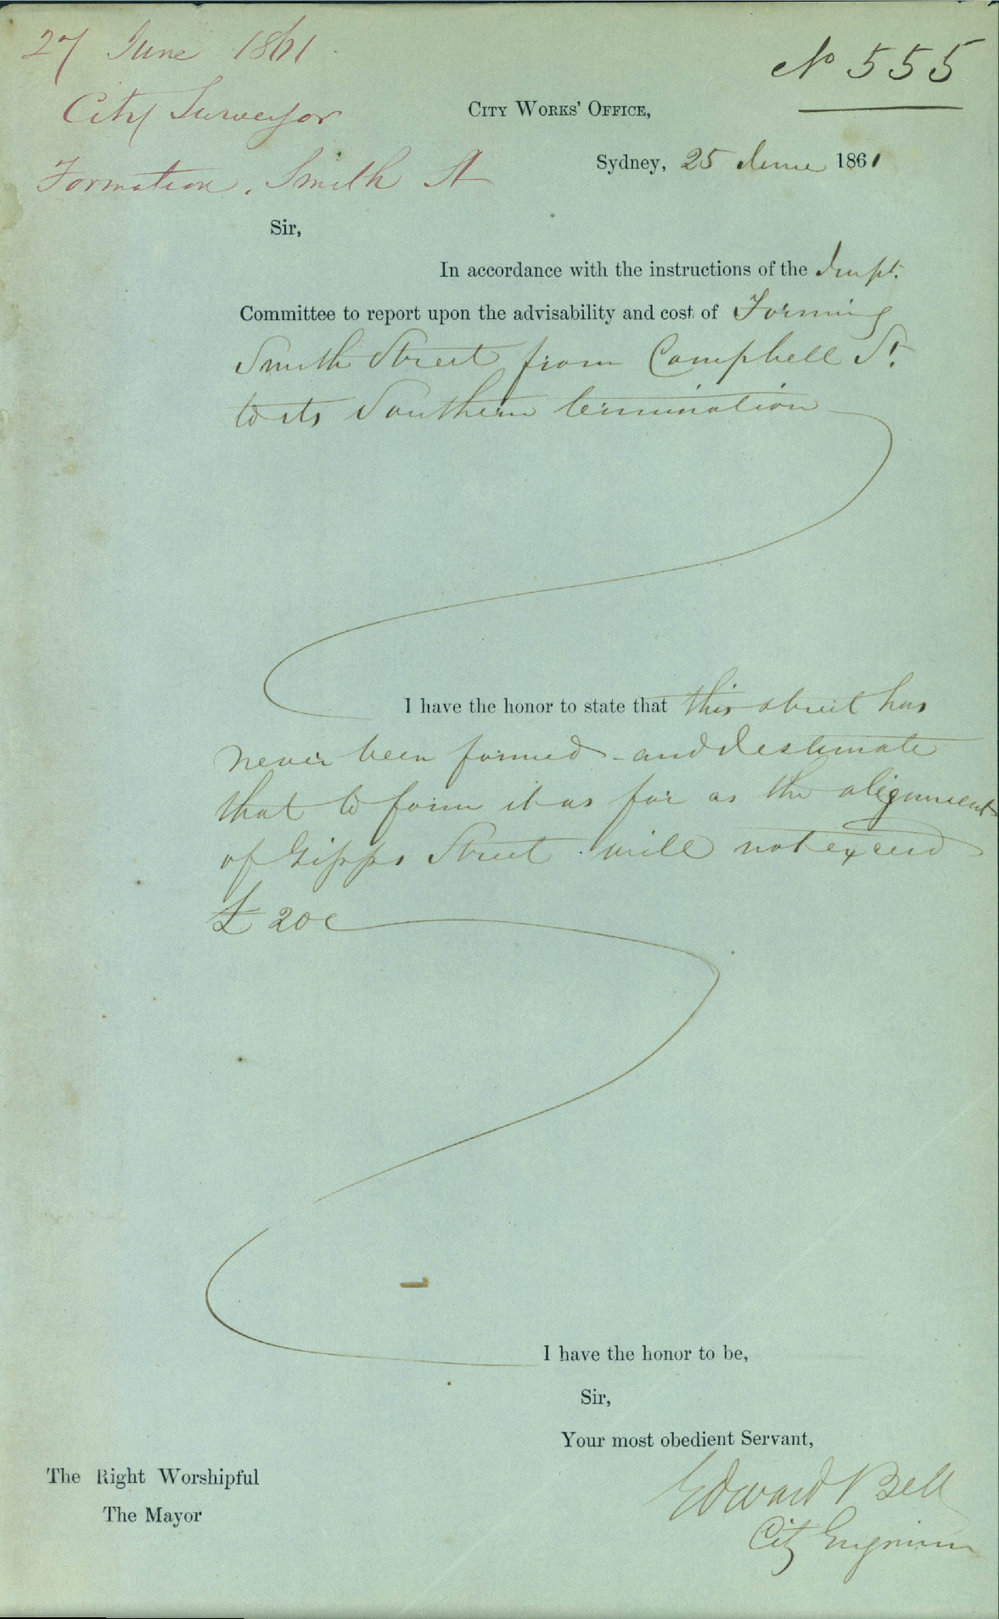 27 June 1861
City Surveyor
Formation, Smith St
No 555
City Works' Office,
Sydney, 25 June 1861
Sir,
In accordance with the instructions of the Impt.
Committee to report upon the advisability and cost of Forming
Smith Street from Campbell St.
to its Southern termination
I have the honor to state that this street has
never been formed and I estimate
that to form it as far as the alignment
of Gipps Street will not exceed
£ 200
I have the honor to be,
Sir,
Your most obedient Servant,
Edward Bell
City Engineer
The Right Worshipful
The Mayor